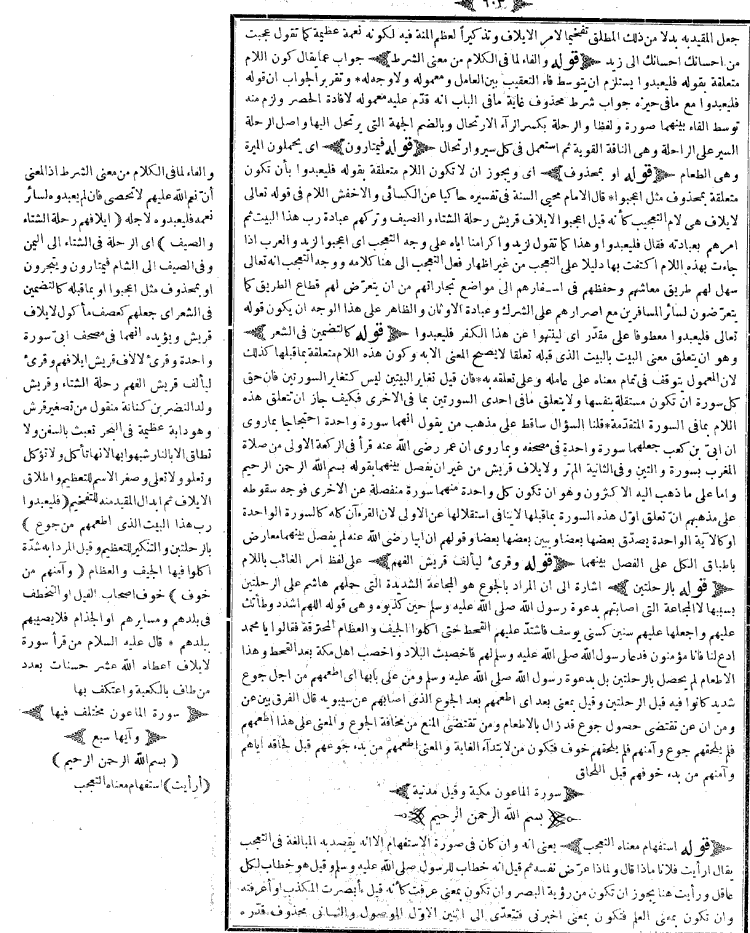 ٦٠٣
جعل المقيد به بدلا من ذلك المطلق تفخيما لامر الايلاف وتذكيرا لعظم المنة فيه لكونه نعمة عظيمة كما تقول عجبت
من احسانك احسانك الى زيد ﴿قوله والفاء لما فى الكلام من معنى الشرط﴾ جواب عما يقال كون اللام
متعلقة بقوله فليعبدوا يستلزم ان يتوسط فاء التعقيب بين العامل ومعموله ولا وجه له * وتقرير الجواب ان قوله
فليعبدوا مع ما فى حيزه جواب شرط محذوف غاية ما فى الباب انه قدم عليه معموله لافادة الحصر ولزم منه
توسط الفاء بينهما صورة ولفظا والرحلة بكسر الرآء الارتحال وبالضم الجهة التى يرتحل اليها واصل الرحلة
السير على الراحلة وهى الناقة القوية ثم استعمل فى كل سير وارتحال ﴿قوله فيمتارون﴾ اى يحملون الميرة
وهى الطعام ﴿قوله او بمحذوف﴾ اى ويجوز ان لا تكون اللام متعلقة بقوله فليعبدوا بأن تكون
متعلقة بمحذوف مثل اعجبوا * قال الامام محيى السنة فى تفسيره حاكيا عن الكسائى والاخفش اللام فى قوله تعالى
لايلاف هى لام التعجب كأنه قيل اعجبوا لايلاف قريش رحلة الشتاء والصيف وتركهم عبادة رب هذا البيت ثم
امرهم بعبادته فقال فليعبدوا وهذا كما تقول لزيد واكرامنا اياه على وجه التعجب اى اعجبوا لزيد والعرب اذا
جاءت بهذه اللام اكتفت بها دليلا على التعجب من غير اظهار فعل التعجب الى هنا كلامه ووجه التعجب انه تعالى
سهل لهم طريق معاشهم وحفظهم فى اسفارهم الى مواضع تجاراتهم من ان يتعرض لهم قطاع الطريق كما
يتعرضون لسائر المسافرين مع اصرارهم على الشرك وعبادة الاوثان والظاهر على هذا الوجه ان يكون قوله
تعالى فليعبدوا معطوفا على مقدر اى لينتهوا عن هذا الكفر فليعبدوا ﴿قوله كالتضمين فى الشعر﴾
وهو ان يتعلق معنى البيت بالبيت الذى قبله تعلقا لا يصح المعنى الا به وكون هذه اللام متعلقة بما قبلها كذلك
لان المعمول يتوقف فى تمام معناه على عامله وعلى تعلقه به * فان قيل تغاير البيتين ليس كتغاير السورتين فان حق
كل سورة ان تكون مستقلة بنفسها ولا يتعلق ما فى احدى السورتين بما فى الاخرى فكيف جاز ان تتعلق هذه
اللام بما فى السورة المتقدمة * قلنا السؤال ساقط على مذهب من يقول انهما سورة واحدة احتجاجا بما روى
ان ابى بن كعب جعلهما سورة واحدة فى مصحفه وبما روى ان عمر رضى الله عنه قرأ فى الركعة الاولى من صلاة
المغرب بسورة والتين وفى الثانية الم تر ولايلاف قريش من غير ان يفصل بينهما بقوله بسم الله الرحمن الرحيم
واما على ما ذهب اليه الاكثرون وهو ان تكون كل واحدة منهما سورة منفصلة عن الاخرى فوجه سقوطه
على مذهبهم ان تعلق اول هذه السورة بما قبلها لا ينافى استقلالها عن الاولى لان القرءآن كله كالسورة الواحدة
او كالآية الواحدة يصدق بعضها بعضا ويبين بعضها بعضا وقولهم ان ابيا رضى الله عنه لم يفصل بينهما معارض
باطباق الكل على الفصل بينهما ﴿قوله وقرئ ليألف قريش الفهم﴾ على لفظ امر الغائب باللام
﴿قوله بالرحلتين﴾ اشارة الى ان المراد بالجوع هو المجاعة الشديدة التى حملهم هاشم على الرحلتين
بسببها لا المجاعة التى اصابتهم بدعوة رسول الله صلى الله عليه وسلم حين كذبوه وهى قوله اللهم اشدد وطأتك
عليهم واجعلها عليهم سنين كسنى يوسف فاشتد عليهم القحط حتى اكلوا الجيف والعظام المحترقة فقالوا يا محمد
ادع لنا فانا مؤمنون فدعا رسول الله صلى الله عليه وسلم لهم فاخصبت البلاد واخصب اهل مكة بعد القحط وهذا
الاطعام لم يحصل بالرحلتين بل بدعوة رسول الله صلى الله عليه وسلم ومن على بابها اى اطعمهم من اجل جوع
شديد كانوا فيه قبل الرحلتين وقيل بمعنى بعد اى اطعمهم بعد الجوع الذى اصابهم عن سيبويه قال الفرق بين عن
ومن ان عن تقتضى حصول جوع قد زال بالاطعام ومن تقتضى المنع من مخافة الجوع والمعنى على هذا اطعمهم
فلم يلحقهم جوع وآمنهم فلم يلحقهم خوف فتكون من لابتدآء الغاية والمعنى اطعمهم من بدء جوعهم قبل لحاقه اياهم
وآمنهم من بدء خوفهم قبل اللحاق
﴿سورة الماعون مكية وقيل مدنية﴾
﴿بسم الله الرحمن الرحيم﴾
﴿قوله استفهام معناه التعجب﴾ يعنى انه وان كان فى صورة الاستفهام الا انه يقصد به المبالغة فى التعجب
يقال ارأيت فلانا ماذا قال ولماذا عرض نفسه ثم قيل انه خطاب للرسول صلى الله عليه وسلم وقيل هو خطاب لكل
عاقل ورأيت هنا يجوز ان تكون من رؤية البصر وان تكون بمعنى عرفت كأنه قيل ءأبصرت المكذب او أعرفته
وان تكون بمعنى العلم فتكون بمعنى اخبرنى فتتعدى الى اثنين الاول الموصول والثانى محذوف قدره
والفاء لما فى الكلام من معنى الشرط اذ المعنى
ان نعم الله عليهم لا تحصى فان لم يعبدوه لسائر
نعمه فليعبدوه لاجله ( ايلافهم رحلة الشتاء
والصيف ) اى الرحلة فى الشتاء الى اليمن
وفى الصيف الى الشام فيمتارون ويتجرون
او بمحذوف مثل اعجبوا او بما قبله كالتضمين
فى الشعر اى جعلهم كعصف مأكول لايلاف
قريش ويؤيده انهما فى مصحف ابى سورة
واحدة وقرئ لالاف قريش ايلافهم وقرئ
ليألف قريش الفهم رحلة الشتاء وقريش
ولد النضر بن كنانة منقول من تصغير قرش
وهو دابة عظيمة فى البحر تعبث بالسفن ولا
تطاق الا بالنار شبهوا بها لانها تأكل ولا تؤكل
وتعلو ولا تعلى وصغر الاسم للتعظيم واطلاق
الايلاف ثم ابدال المقيد منه للتفخيم ( فليعبدوا
رب هذا البيت الذى اطعمهم من جوع )
بالرحلتين والتنكير للتعظيم وقيل المراد به شدة
اكلوا فيها الجيف والعظام ( وآمنهم من
خوف ) خوف اصحاب الفيل او التخطف
فى بلدهم ومسايرهم او الجذام فلا يصيبهم
ببلدهم * قال عليه السلام من قرأ سورة
لايلاف اعطاه الله عشر حسنات بعدد
من طاف بالكعبة واعتكف بها
﴿سورة الماعون مختلف فيها﴾
﴿وآيها سبع﴾
( بسم الله الرحمن الرحيم )
(أرأيت) استفهام معناه التعجب